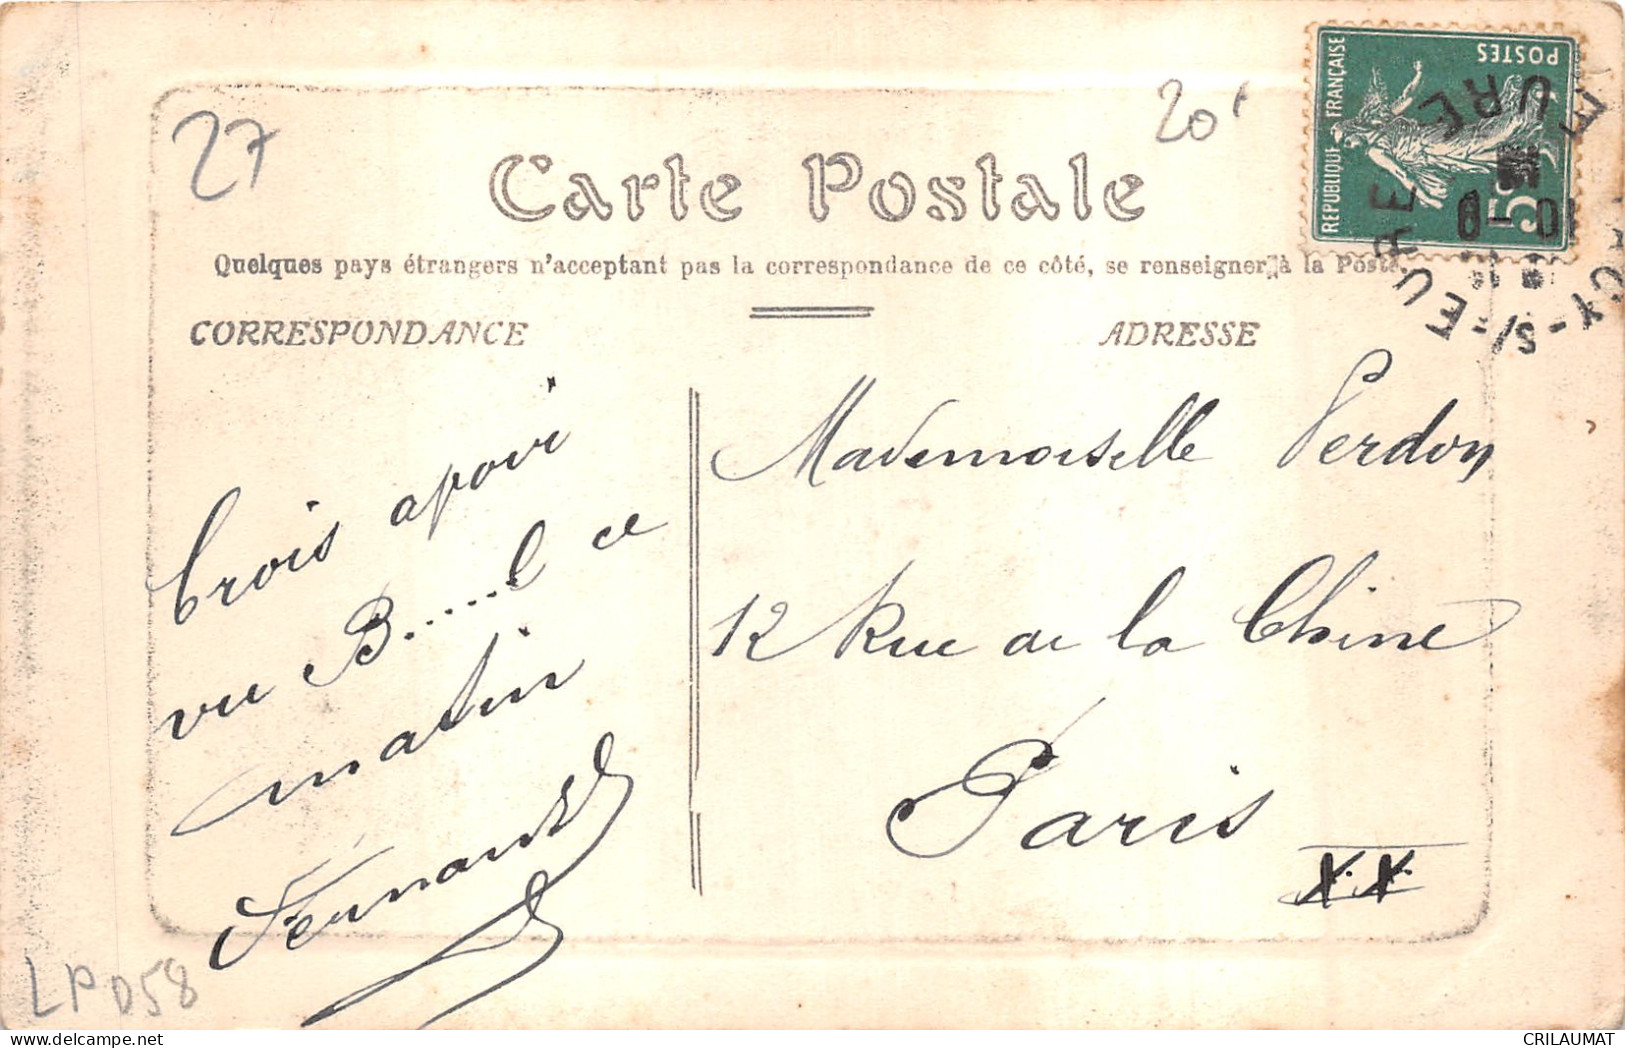 27
20
REPUBLIQUE FRANÇAISE
POSTES
Carte Postale
Quelques pays étrangers n'acceptant pas la correspondance de ce côté, se renseigner à la Poste.
CORRESPONDANCE
ADRESSE
S/-EURE
EURE
Crois avoir
vu B.....l ce
matin
Fernand
Mademoiselle Perdon
12 Rue de la Chine
Paris
XX
LPD58
CRILAUMAT